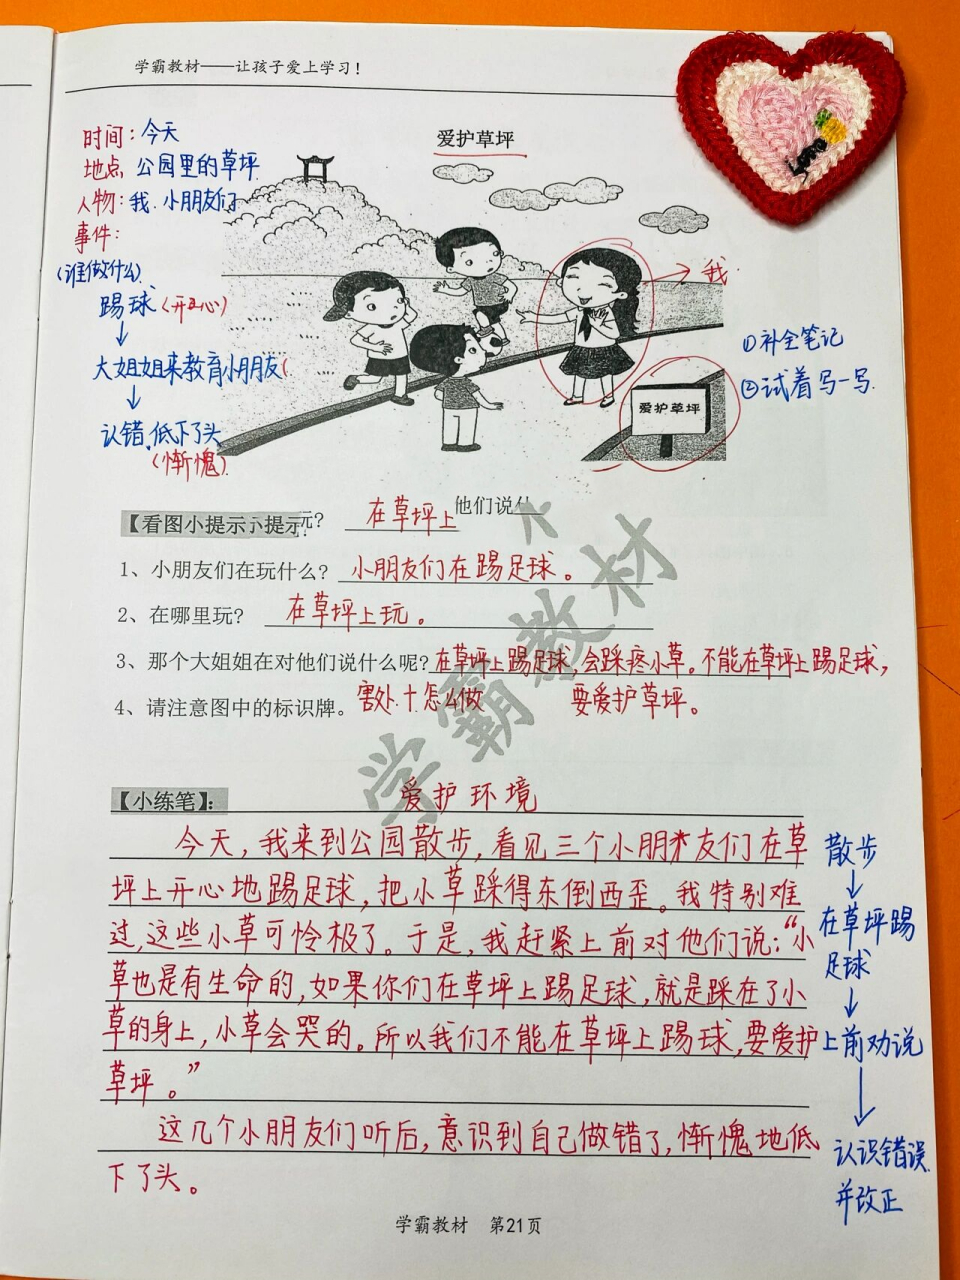 学霸教材——让孩子爱上学习！
爱护草坪
时间：今天
地点、公园里的草坪
人物：我、小朋友们
事件：
(谁做什么)
踢球(开心)
↓
大姐姐来教育小朋友(
↓
认错、低下了头
(惭愧)
→我
①补全笔记
②试着写一写.
爱护草坪
【看图小提示
玩？ 在草坪上 他们说什
1、小朋友们在玩什么？ 小朋友们在踢足球。
2、在哪里玩？ 在草坪上玩。
3、那个大姐姐在对他们说什么呢？在草坪上踢足球,会踩疼小草。不能在草坪上踢足球,
4、请注意图中的标识牌。 害处十怎么做 要爱护草坪。
学霸教材
【小练笔】： 爱护环境
今天,我来到公园散步,看见三个小朋友们在草
坪上开心地踢足球,把小草踩得东倒西歪。我特别难
过,这些小草可怜极了。于是,我赶紧上前对他们说:“小
草也是有生命的,如果你们在草坪上踢足球,就是踩在了小
草的身上,小草会哭的。所以我们不能在草坪上踢球,要爱护
草坪。”
这几个小朋友们听后,意识到自己做错了,惭愧地低
下了头。
散步
↓
在草坪踢
足球
↓
上前劝说
↓
认识错误
并改正
学霸教材 第21页